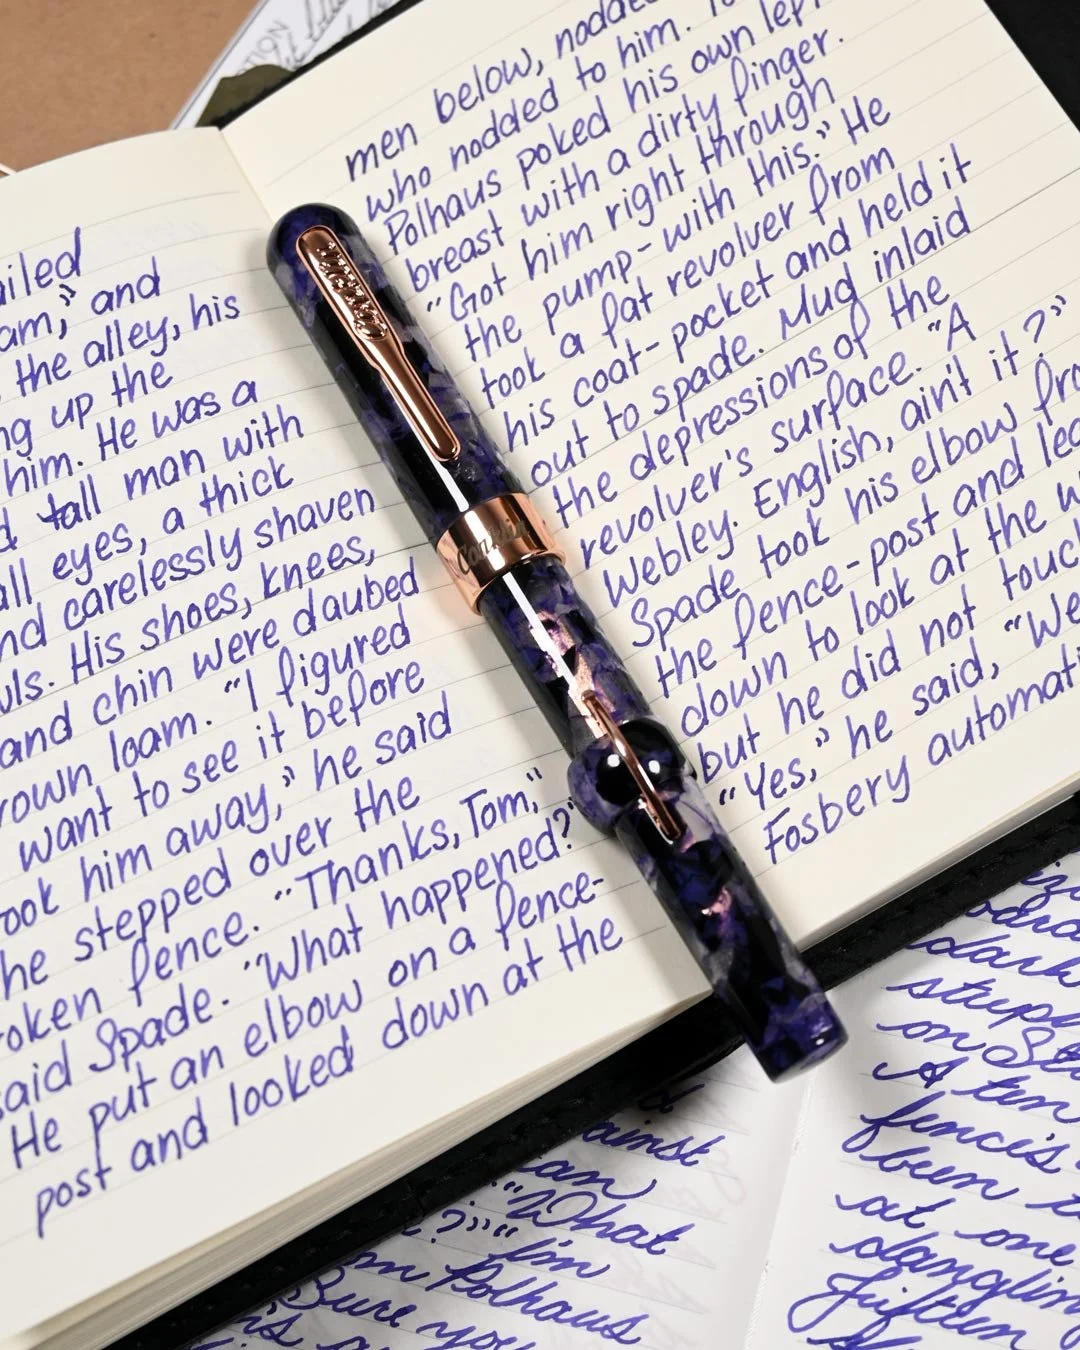 ailed
am," and
the alley, his
ng up the
him. He was a
d tall man with
all eyes, a thick
nd carelessly shaven
wls. His shoes, knees,
and chin were daubed
rown loam. "I figured
want to see it before
ook him away," he said
he stepped over the
oken fence. "Thanks, Tom,"
said Spade. "What happened?"
He put an elbow on a fence-
post and looked down at the
men below, nodded
who nodded to him.
Polhaus poked his own left
breast with a dirty finger.
"Got him right through
the pump-with this." He
took a fat revolver from
his coat-pocket and held it
out to spade. Mud inlaid
the depressions of the
revolver's surface. "A
Webley. English, ain't it?"
Spade took his elbow fro
the fence-post and lea
down to look at the w
but he did not touch
"Yes," he said, "We
Fosbery automati
Conklin
Conklin
ainst
an
"What
?" "I'm
m Polhaus
Sure you
dark
stup
on St
A ten
fence's
been t
at one
danglin
Fifteen